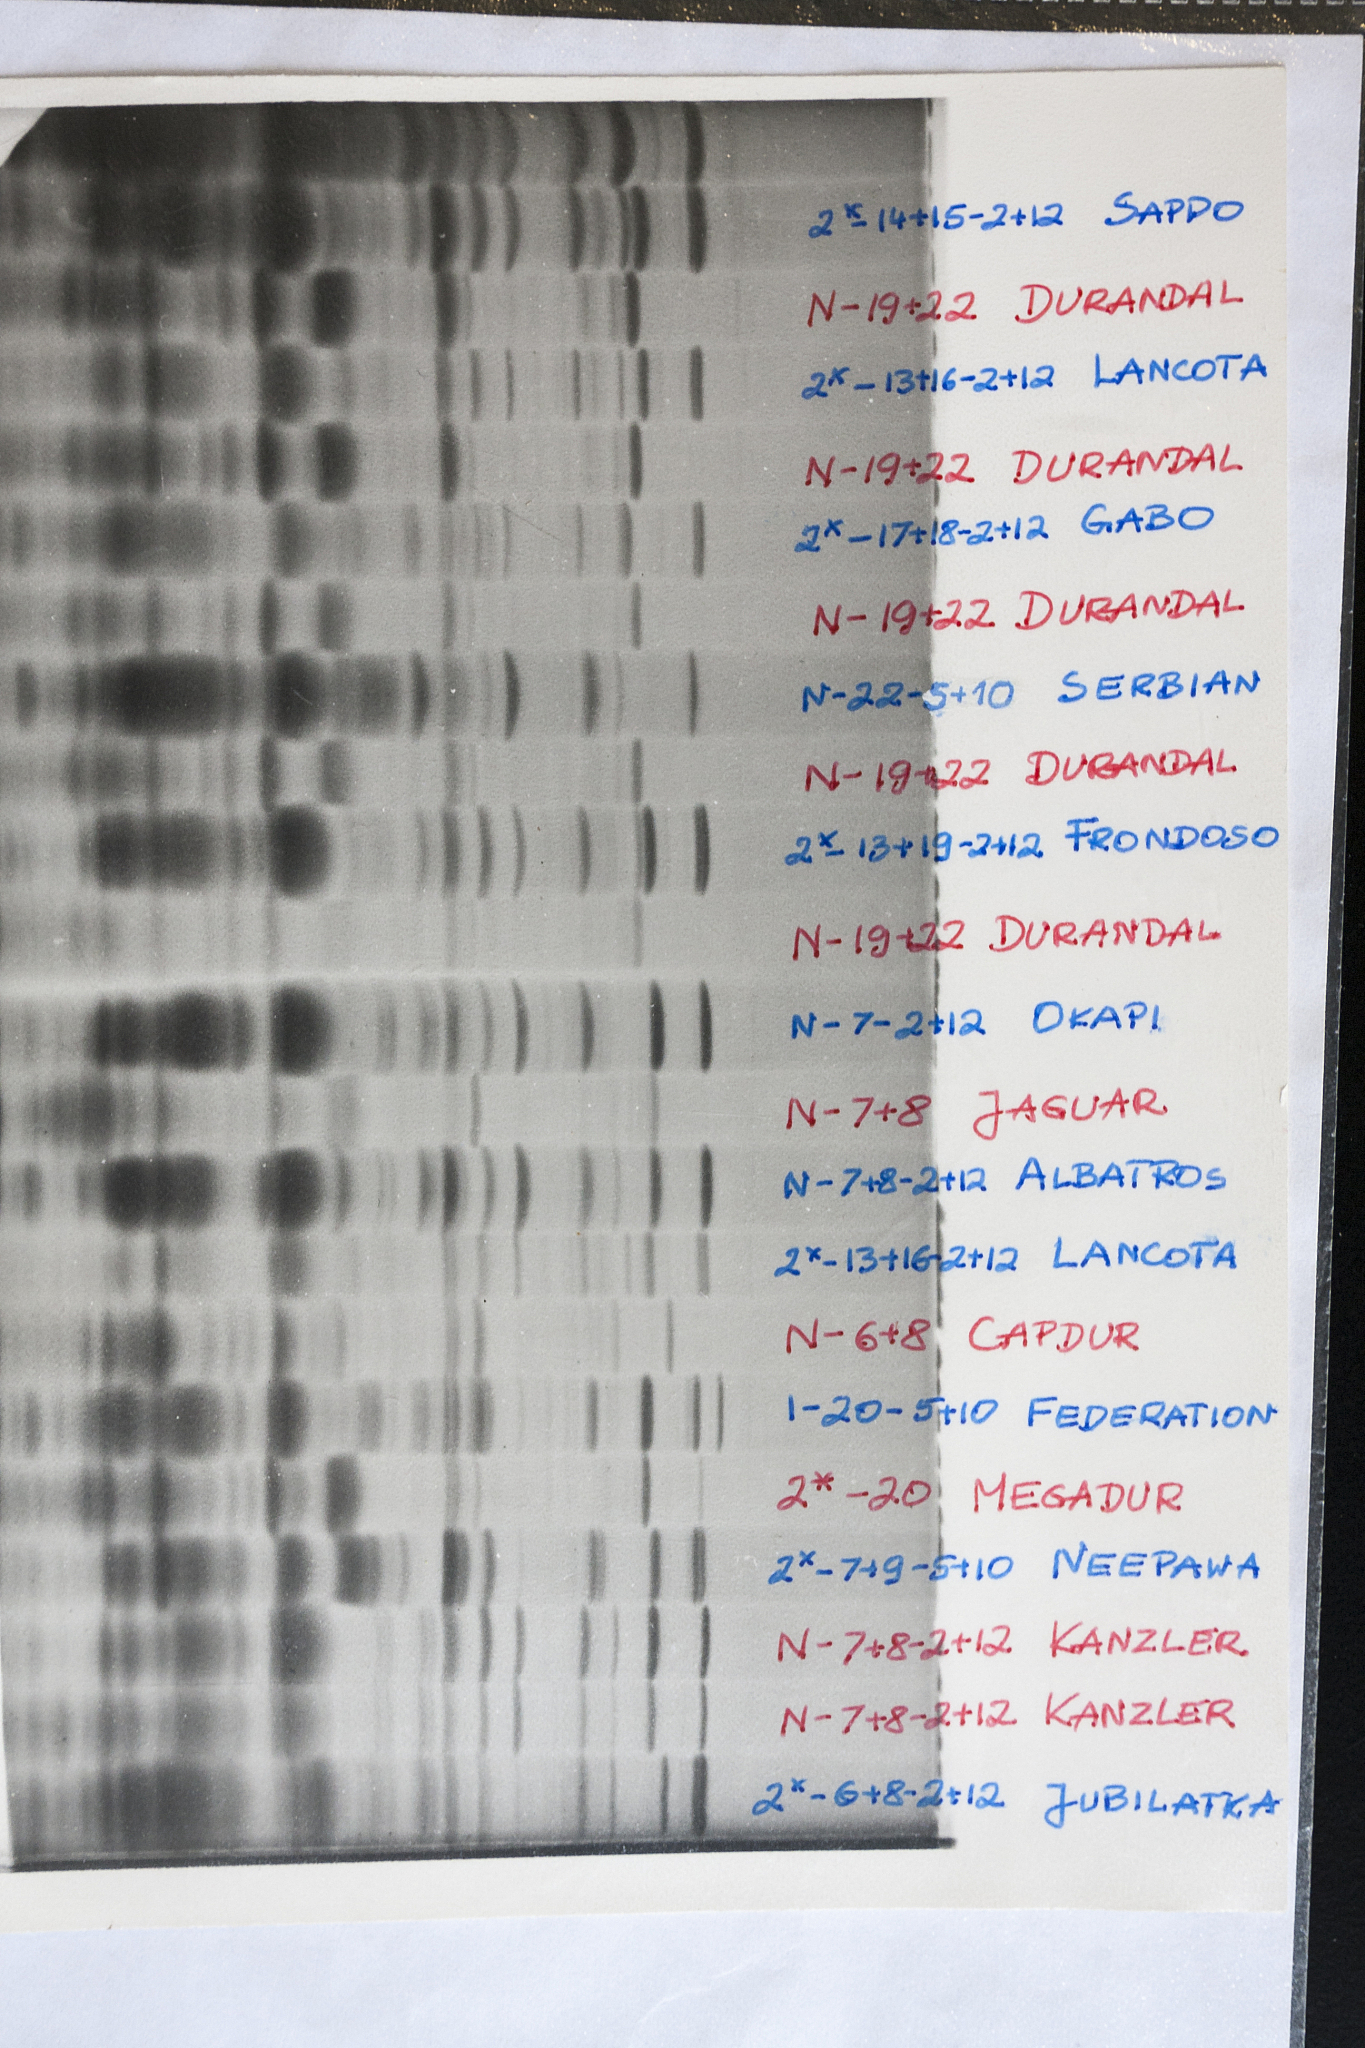 2*-14+15-2+12 SAPPO
N-19+22 DURANDAL
2*-13+16-2+12 LANCOTA
N-19+22 DURANDAL
2*-17+18-2+12 GABO
N-19+22 DURANDAL
N-22-5+10 SERBIAN
N-19+22 DURANDAL
2*-13+19-2+12 FRONDOSO
N-19+22 DURANDAL
N-7-2+12 OKAPI
N-7+8 JAGUAR
N-7+8-2+12 ALBATROS
2*-13+16-2+12 LANCOTA
N-6+8 CAPDUR
1-20-5+10 FEDERATION
2*-20 MEGADUR
2*-7+9-5+10 NEEPAWA
N-7+8-2+12 KANZLER
N-7+8-2+12 KANZLER
2*-6+8-2+12 JUBILATKA